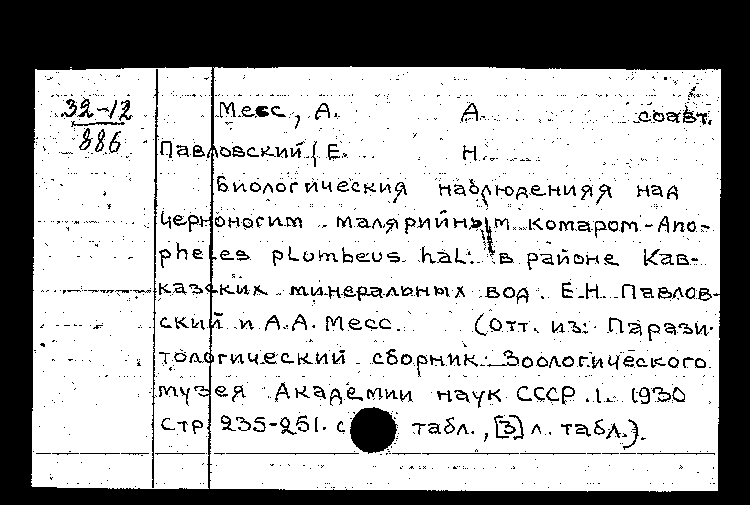 32-12
886
Месс, А. А. соавт.
Павловский, Е. Н.
Биологическия наблюденияя над
черноногим малярийным комаром-Ano-
pheles plumbeus hal. в районе Кав-
казских минеральных вод. Е.Н. Павлов-
ский и А.А. Месс. (Отт. из: Парази-
тологический сборник Зоологического
музея Академии наук СССР. 1. 1930
стр 235-251. с табл., [3] л. табл.).